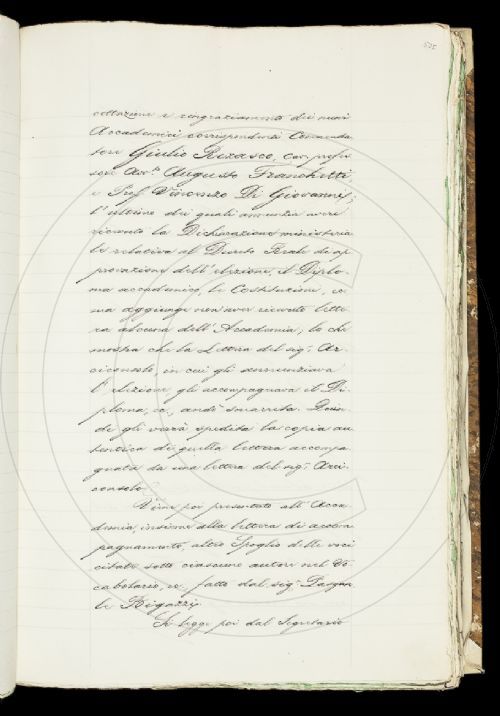 525
cettazione e rengraziamento dei nuovi
Accademici corrispondenti Commenda
tore Giulio Rezasco, Cav. profes
sore Avv.º Augusto Franchetti
e Prof. Vincenzo Di Giovanni;
l'ultimo dei quali annunzia aver
ricevuto la Dichiarazione ministeria
le relativa al Decreto Reale di ap
provazione dell'elezione, il Diplo
ma accademico, le Costituzioni, 
ma aggiunge non aver ricevuto lette
ra alcuna dell'Accademia; lo che
mostra che la Lettera del sig.r Ar
ciconsolo, in cui gli annunziava
l'elezione gli accompagnava il Di
ploma, andò smarrita. Quin
di gli verrà spedita la copia au
tentica di quella lettera accompa
gnata da una lettera del sig.r Arci
consolo.
Viene poi presentato all'Acca
demia, insieme alla lettera di accom
pagnamento, altro Spoglio delle voci
citate sotto ciascuno autore nel Vo
cabolario, fatto dal sig.r Pasqua
le Bigazzi.
Si legge poi dal Segretario